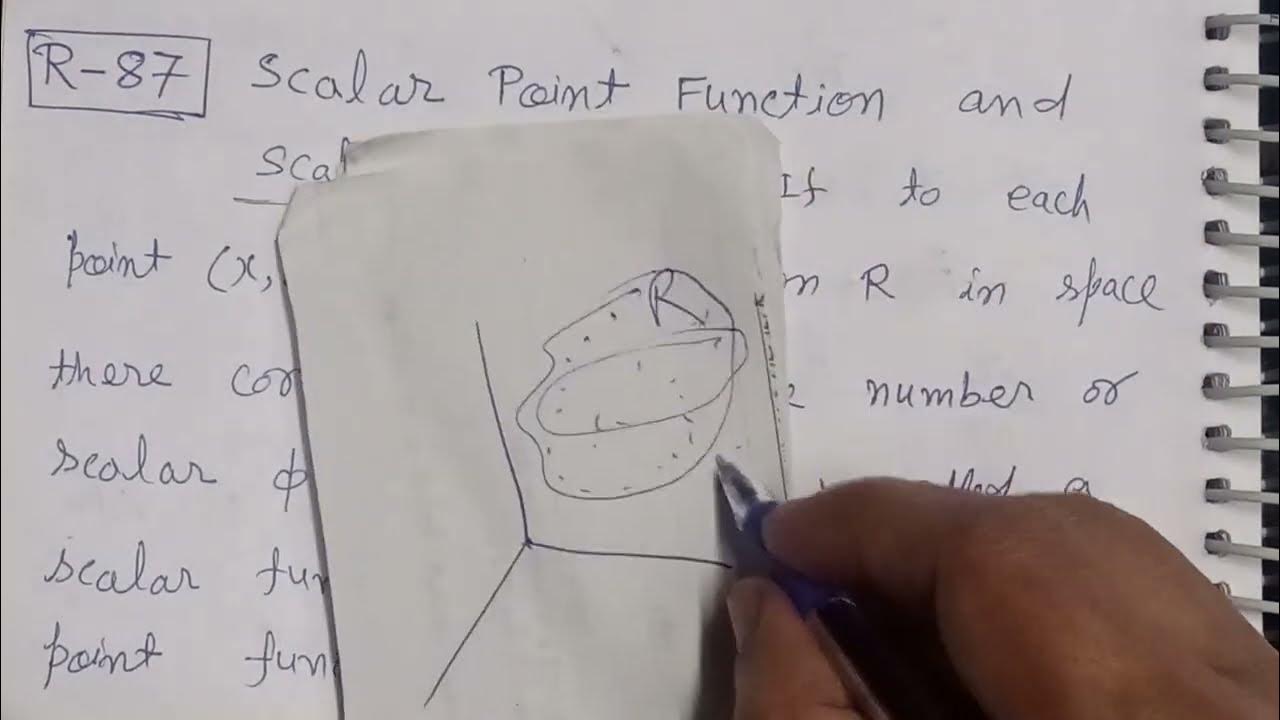 R-87 Scalar Point Function and
Scal If to each
point (x, n R in space
there cor number or
scalar ϕ a
scalar fun
point fun
R